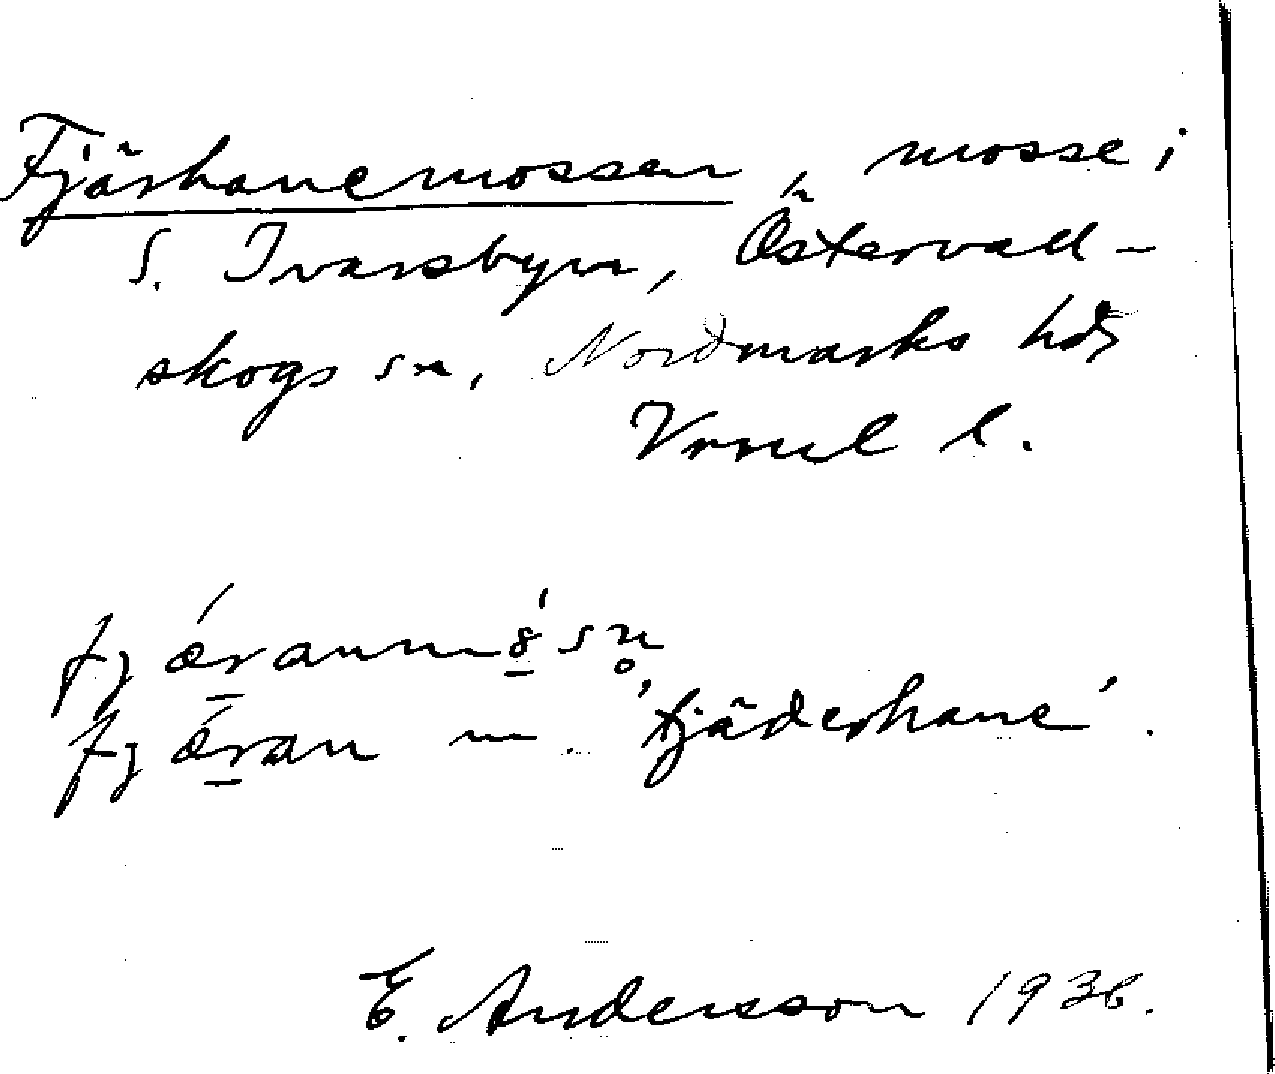 Fjärhanemossen, mosse i
S. Ivarsbyn, Östervall-
skogs sn, Nordmarks hd,
Vrml l.
fj ǽranmǿsn̥
fj ǽran m. 'fjäderhane'.
E. Andersson 1936.